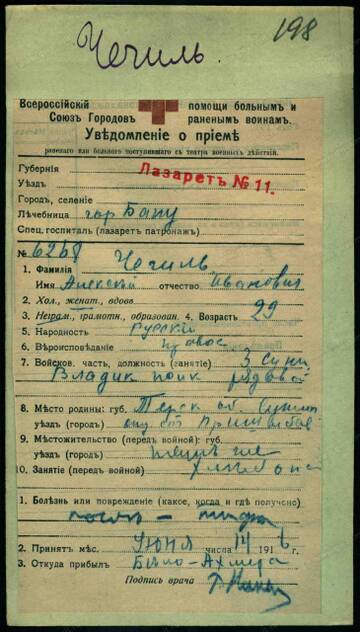 Чечиль.
198
Всероссійскій помощи больнымъ и
Союзъ Городовъ раненымъ воинамъ.
Увѣдомленіе о пріемѣ
раненаго или больного поступившаго съ театра военныхъ дѣйствій.
Губернія
Уѣздъ
Лазаретъ № 11.
Городъ, селеніе
Лѣчебница гор Баку
Спец. госпиталь (лазаретъ патронажъ)
№ 6268
1. Фамилія Чечиль
Имя Алексѣй отчество Иванович
2. Хол., женат., вдовъ
3. Неграм., грамотн., образован. 4. Возрастъ 29
5. Народность Русскій
6. Вѣроисповѣданіе правос
7. Войсков. часть, должность (занятіе) 3
Владик полк рядовой
8. Мѣсто родины: губ. Терск об.
уѣздъ (город)
9. Мѣстожительство (передъ войной): губ.
уѣздъ (город)
10. Занятіе (передъ войной)
1. Болѣзнь или поврежденіи (какое, когда и гдѣ получено)
тифа
2. Принятъ мѣс. Июня числа 14 191 6
3. Откуда прибылъ
Подпись врача